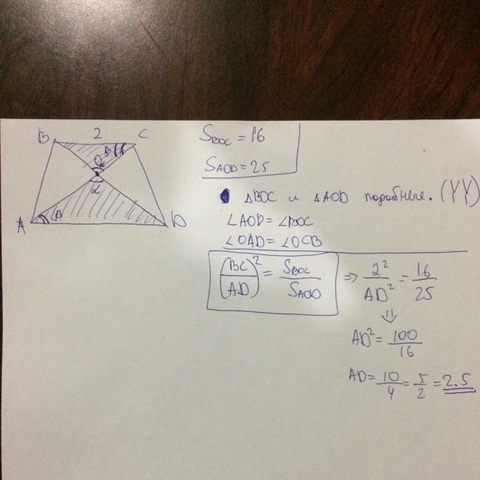 B 2 C
β
O
α
A β D
S_BOC = 16
S_AOD = 25
△BOC и △AOD подобные. (УУ)
∠AOD = ∠BOC
∠OAD = ∠OCB
(BC/AD)² = S_BOC/S_AOD ⇒ 2²/AD² = 16/25
⇓
AD² = 100/16
AD = 10/4 = 5/2 = 2.5